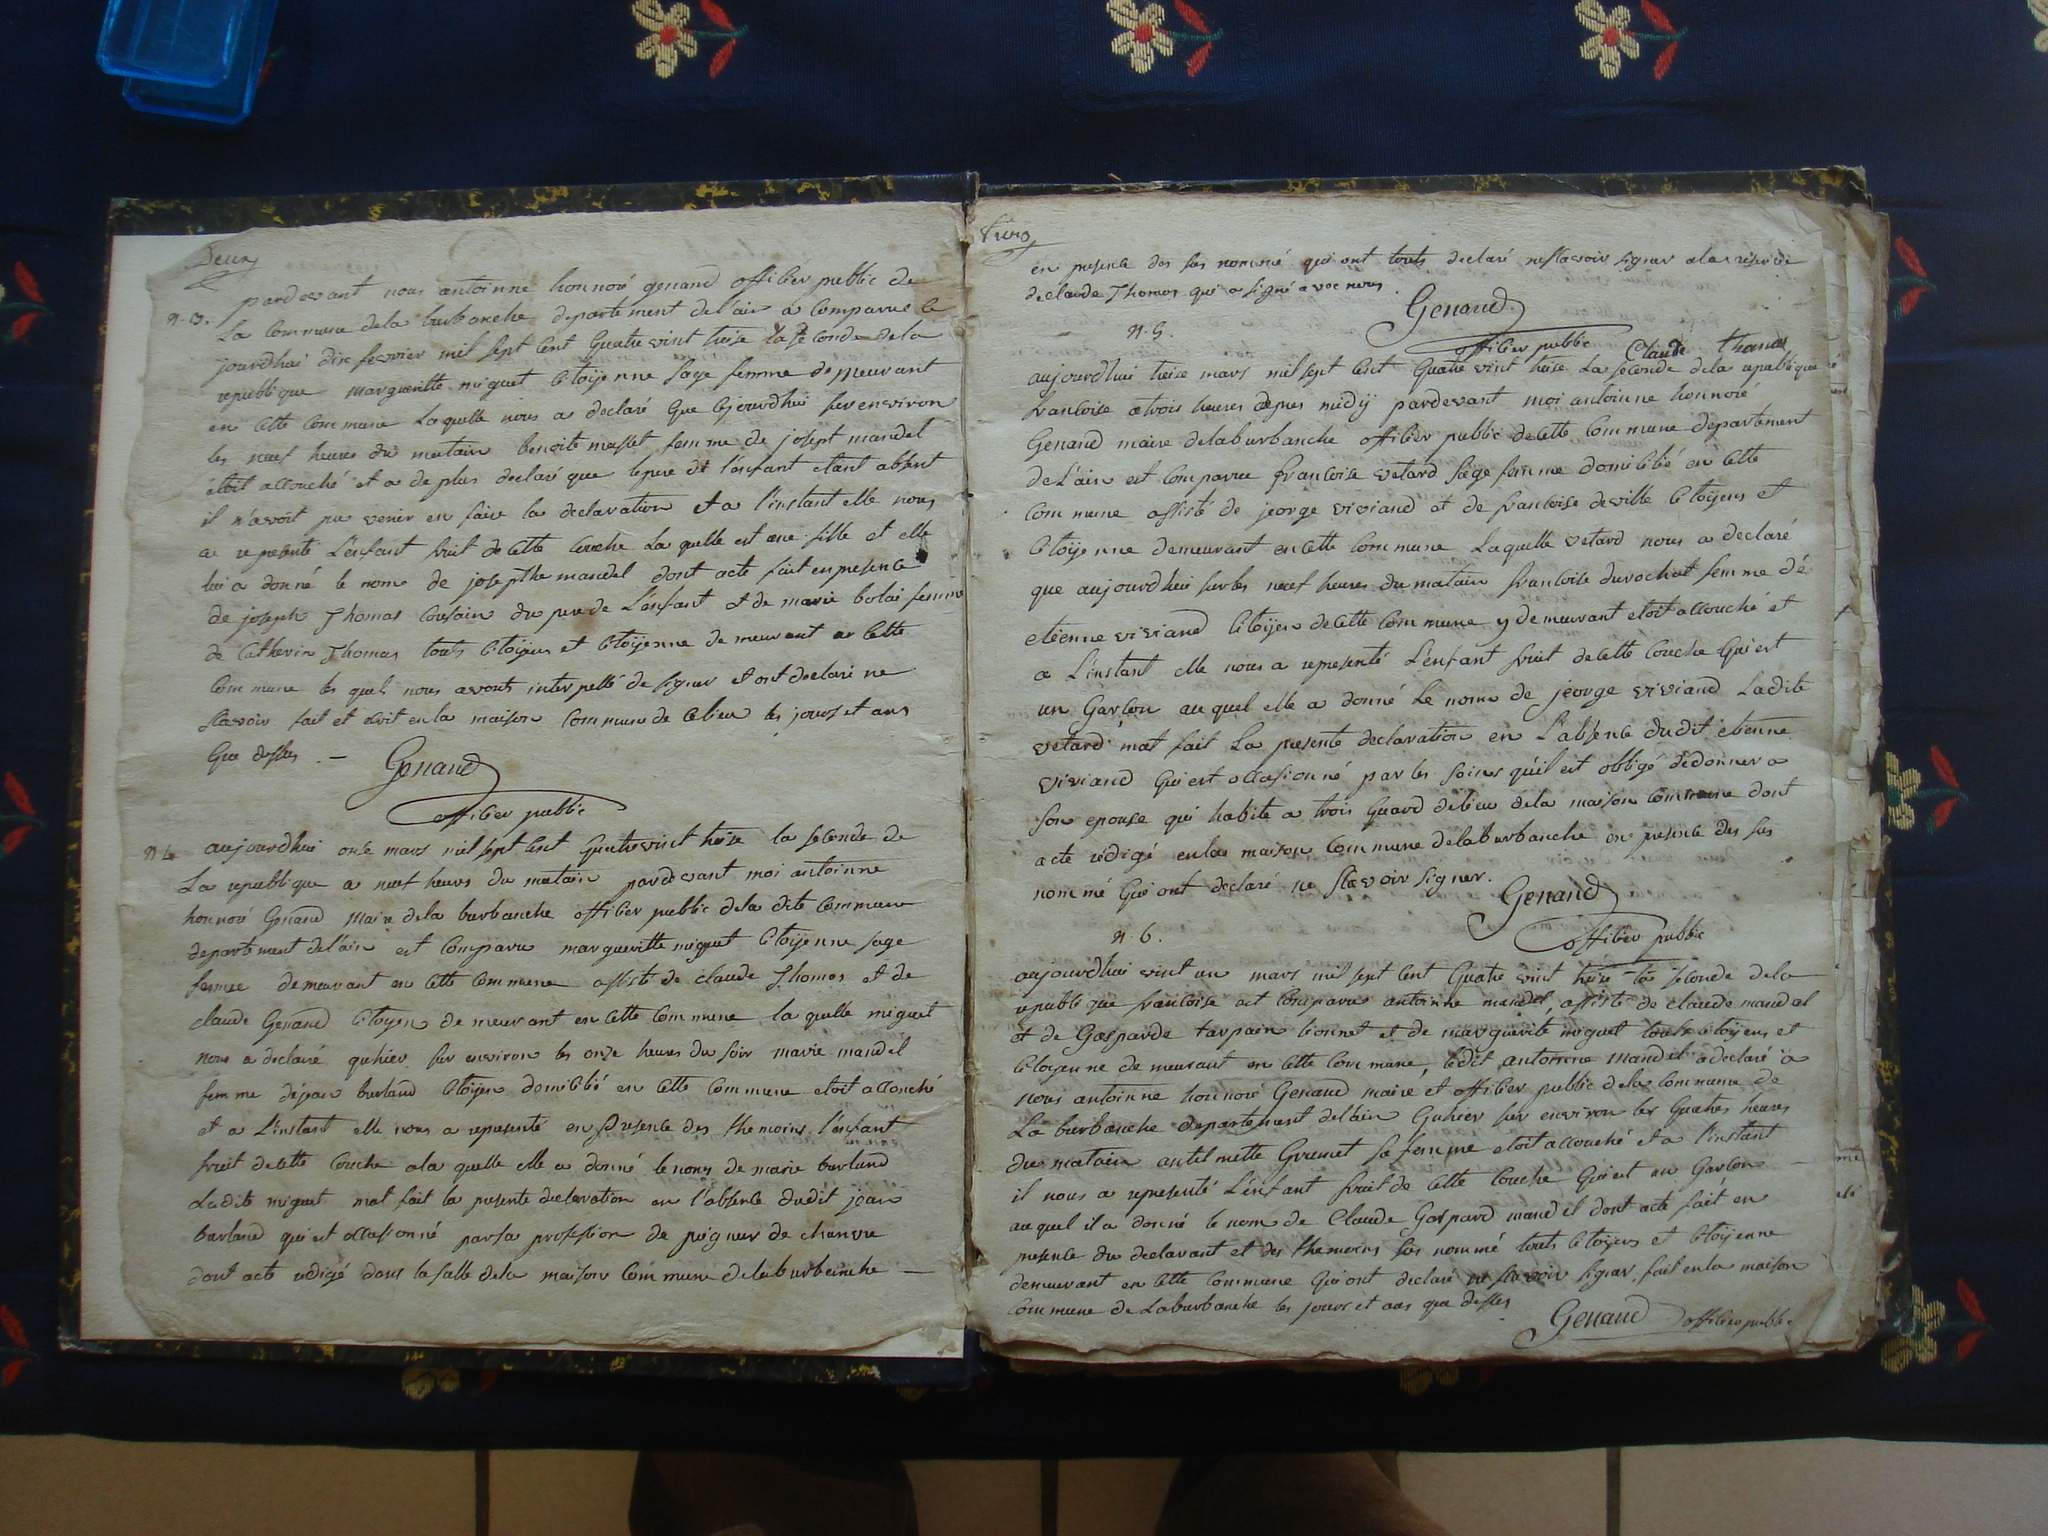 Deux
n. 3.
pardevant nous antoinne honnoré genand offisier public de
La Commune dela burbanche departement del'ain a comparue le
jourdhui dix fevrier mil sept cent Quatre vint treise la seconde dela
republique margueritte miguet Citoÿenne sage femme demeurant
en Cette Commune Laquelle nous a declaré Que cejourdhui sur environ
les neuf heures du matain benoite masset femme de josept mandel
étoit accouché et a de plus declaré que le pere de l'enfant étant absent
il n'avoit pu venir en faire la declaration et a l'instant elle nous
a representé L'enfant fruit de Cette Couche La quelle est une fille et elle
lui a donné le nom de josepthe mandel dont acte fait en presence
de joseph Thomas Cousain du pere de L'enfant et de marie bolai femme
de Catherin Thomas touts Citoÿens et Citoÿenne demeurant en Cette
Commune les quels nous avonts interpellé de signer et ont declaré ne
scavoir fait et écrit en la maison Commune de Celieu les jours et ans
Que dessus. — Genand
offisier public
n. 4 aujourdhui onse mars mil sept cent Quatre vint treise la seconde de
La republique a neuf heures du matain pardevant moi antoinne
honnoré Genand Maire dela burbanche offisier public dela dite Commune
departement del'ain est Comparu margueritte miguet Citoÿenne sage
femme demeurant en Cette Commune assisté de claude Thomas et de
claude Genand Citoyens demeurant en Cette Commune la quelle miguet
nous a declaré quhier sur environ les onze heures du soir marie mandel
femme dejean burland Citoÿen domicilié en Cette Commune etoit accouché
et a L'instant elle nous a representé en presence des themoins l'enfant
fruit decette Couche ala quelle elle a donné le nom de marie burland
Ladite miguet mat fait la presente declaration en l'absence dudit jean
burland qui est occasionné par sa profession de peigneur de chanvre
dont acte redigé dans la salle dela maison Commune delaburbanche —
trois
en presence des sus nommé qui ont touts declaré ne scavoir signer ala reserve
de claude Thomas qui a signé avec nous.
Genand
offisier public Claude thomas
n. 5.
aujourdhui treise mars mil sept cent Quatre vint treise La seconde dela republique
francoise a trois heures après midÿ pardevant moi antoinne honnoré
Genand maire delaburbanche offisier public decette Commune departement
de L'ain est Comparue francoise vetard sage femme domicilié en Cette
Commune assisté de jeorge viviand et de francoise deville Citoÿens et
Citoÿenne demeurant en Cette Commune Laquelle vetard nous a declaré
que aujourdhui sur les neuf heures du matain francoise durochat femme dé
eteenne viviand Citoÿen decette Commune y demeurant etoit accouché et
a L'instant elle nous a representé L'enfant fruit decette Couche Qui est
un Garcon au quel elle a donné Le nom de jeorge viviand Ladite
vetard mat fait La presente declaration en L'absence dudit étienne
viviand Qui est occasionné par les soins qu'il est obbligé dedonner a
son epouse qui habite a trois Quard delieu dela maison Commune dont
acte rédigé enla maison Commune delaburbanche en presence des sus
nommé Qui ont declaré ne scavoir signer. Genand
offisier public
n. 6.
aujourdhui vint un mars mil sept cent Quatre vint treise la seconde dela
republique francoise est Comparu antoinne mandel, assisté de claude mandel
et de Gasparde tarpain bonnet et de marguerite miguet touts Citoÿens et
Citoyenne demeurant en Cette Commune, ledit antoinne mandel a declaré a
nous antoinne honnoré Genand maire et offisier public dela Commune de
La burbanche departement del'ain Quhier sur environ les Quatres heures
du matain antilmette Grumet sa femme etoit accouché et a l'instant
il nous a representé L'enfant fruit de Cette Couche Qui est un Garcon
au quel il a donné le nom de Claude Gaspard mandel dont acte fait en
presence du declarant et des themoins sus nommé touts Citoÿens et Citoÿenne
demeurant en Cette Commune Qui ont declaré ne scavoir signer. fait en la maison
Commune de Laburbanche les jours et ans que dessus
Genand offisier public